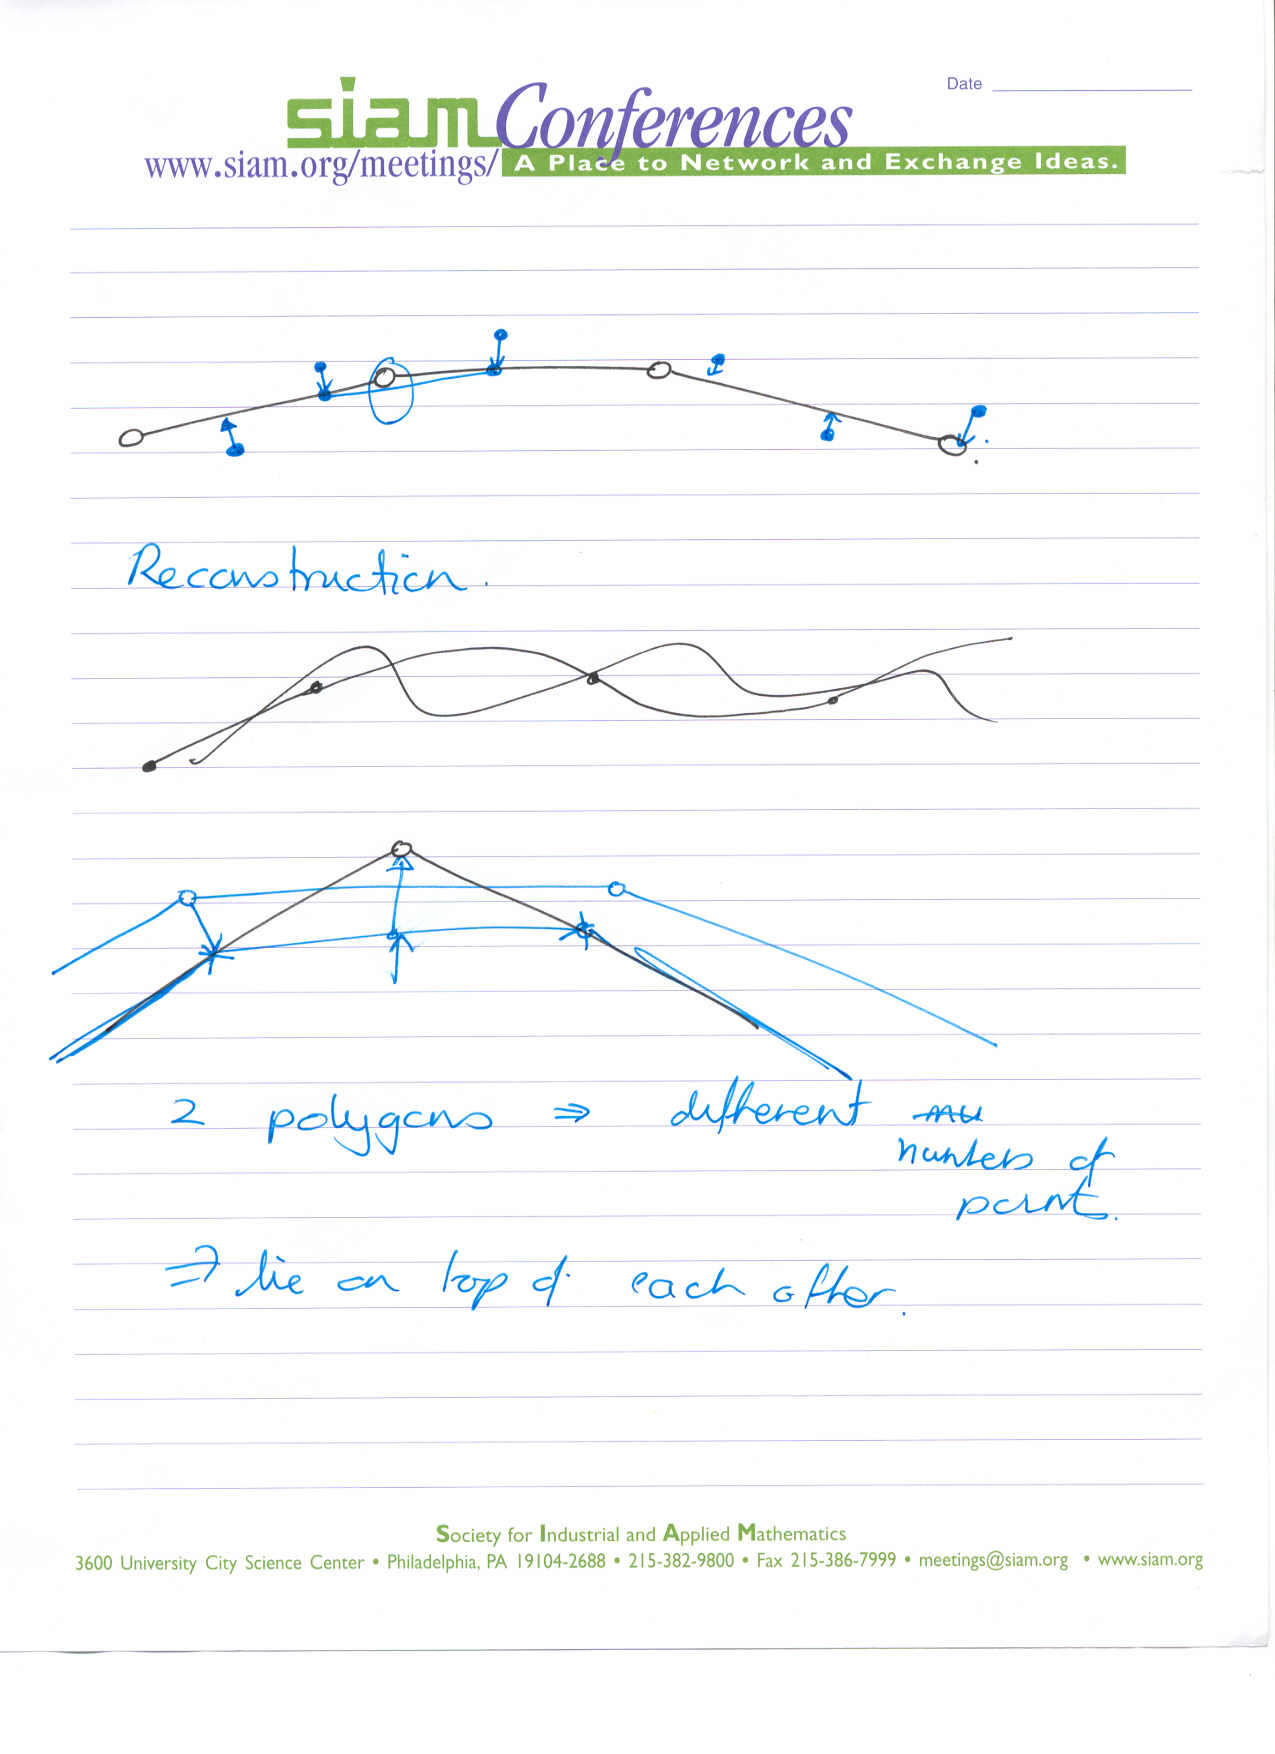 Date
siam Conferences
www.siam.org/meetings/ A Place to Network and Exchange Ideas.
Reconstruction.
2 polygons ⇒ different
numbers of
point.
⇒ lie on top of each other.
Society for Industrial and Applied Mathematics
3600 University City Science Center • Philadelphia, PA 19104-2688 • 215-382-9800 • Fax 215-386-7999 • meetings@siam.org • www.siam.org